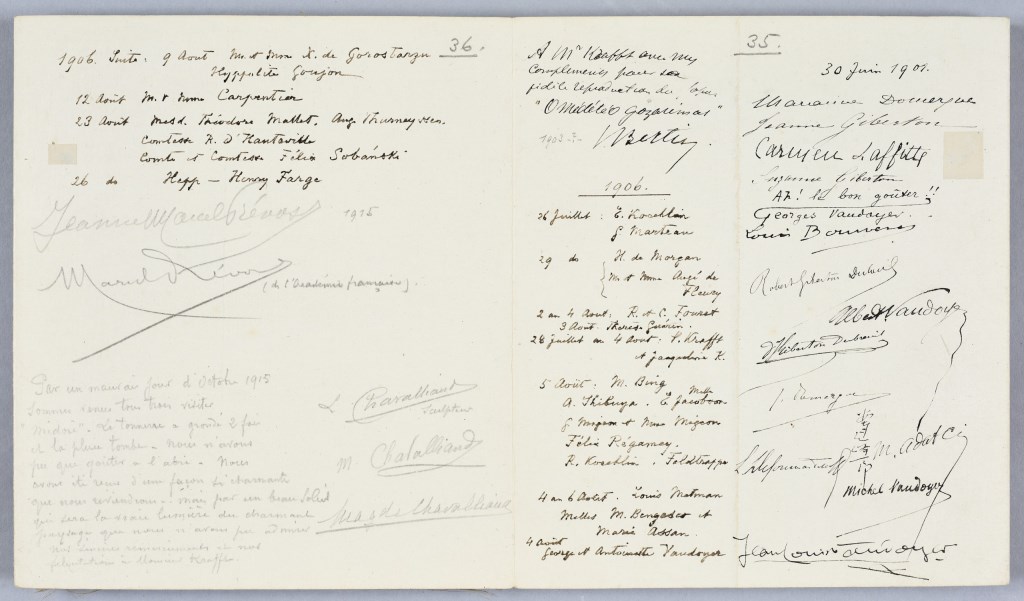 36.
1906. Suite: 9 Aout Mr. et Mme X. de Gorostarzu
Hyppolite Goujon
12 Août Mr. et Mme Carpentier
23 Août Mesd. Théodore Mallet, Aug. Thurneyssen.
Comtesse R. d'Hauteville
Comte et Comtesse Félix Sobański
26 do Hepp — Henry Farge
Jeanne Marcel Prévost 1915
Marcel Prévost
(de l'Académie française).
Par un mauvais jour d'Octobre 1915
sommes venus tous trois visiter
"Midori". Le tonnerre a grondé 2 fois
et la pluie tombe. Nous n'avons
pu que goûter à l'abri. Nous
avons été reçus d'une façon si charmante
que nous reviendrons. mais par un beau soleil
qui sera la vraie lumière du charmant
paysage que nous n'avons pu admirer
Nos sincères remerciements et nos
félicitations à Monsieur Krafft.
L Chavalliaud
sculpteur
M. Chavalliaud
Magde Chavalliaud
A Mr Krafft avec mes
compliments pour sa
fidile reproduction du
"O Mélèléo gozarimas"
1902
Bertin.
1906.
26 juillet: E. Koechlin
J. Marteau
29 do H. de Morgan
Mr. et Mme Augé de
Fleury
2 au 4 Aout: R. et C. Fouret
3 Aout. Thérèse Guérin.
28 juillet au 4 Aout. P. Krafft
et Jacqueline K.
5 Août: M. Bing
A. Shibuya. Melle Jacobson
J. Migeon et Mme Migeon
Félix Régamey.
R. Koechlin. Feldtrappe
4 au 6 Août. Louis Metman
Melles M. Bengesco et
Marie Assan.
4 Août
George et Antoinette Vaudoyer
35.
30 Juin 1901.
Marianne Domergue
Jeanne Giberton
Carmen Laffitte
Suzanne Giberton
Ah! le bon goûter!!
Georges Vaudoyer.
Louis
Robert Giberton Dubreuil
Albert Vaudoyer
Giberton Dubreuil
J. Domergue
M. Adatci
Michel Vaudoyer
Jean Louis Vaudoyer